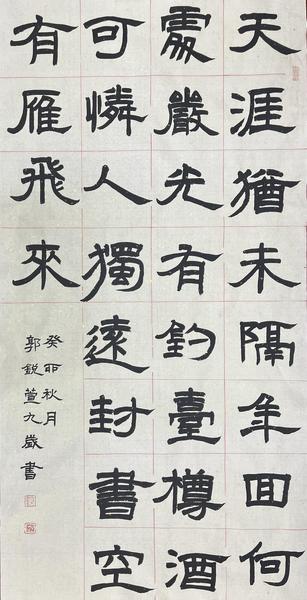 天涯猶未隔年回何
處嚴光有釣臺樽酒
可憐人獨遠封書空
有雁飛來
癸卯秋月
郭銳萱九歲書